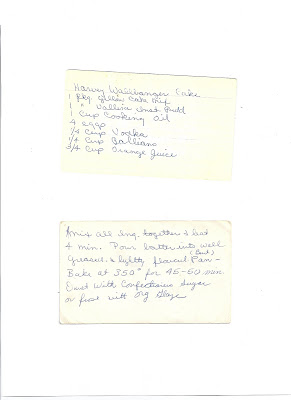 Harvey Wallbanger Cake
1 pkg. Yellow Cake Mix
1 " Vanilla Inst. Pudd
1 Cup Cooking Oil
4 eggs
1/4 Cup Vodka
1/4 Cup Galliano
3/4 Cup Orange Juice
Mix all ing. together & beat
4 min. Pour batter into well
(Bundt)
Greased & lightly floured Pan -
Bake at 350° for 45-50 min.
Dust With Confectioners Sugar
or frost with Org Glaze